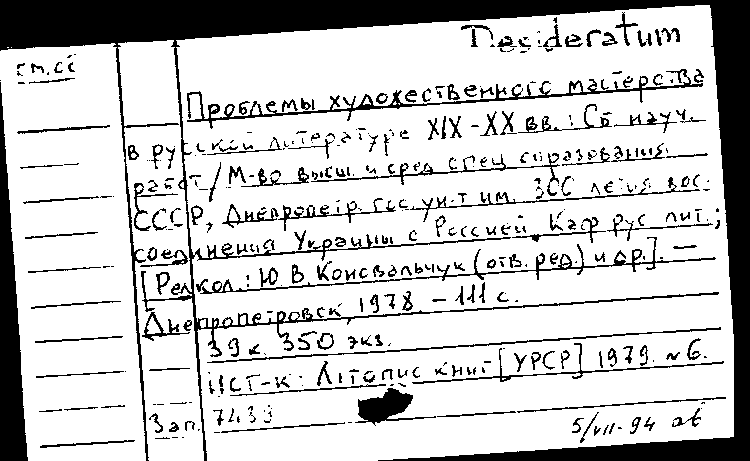 Desideratum
см. сб
Проблемы художественного мастерства
в русской литературе XIX-XX вв.: Сб. науч.
работ / М-во высш. и сред. спец. образования
СССР, Днепропетр. гос. ун-т им. 300-летия вос-
соединения Украины с Россией. Каф. рус. лит.;
[Редкол.: Ю. В. Ковальчук (отв. ред.) и др.]. —
Днепропетровск, 1978. - 111 с.
39 к. 350 экз.
Ист-к: Літопис книг [УРСР] 1979. №6.
Зап. 7439
5/VII-94